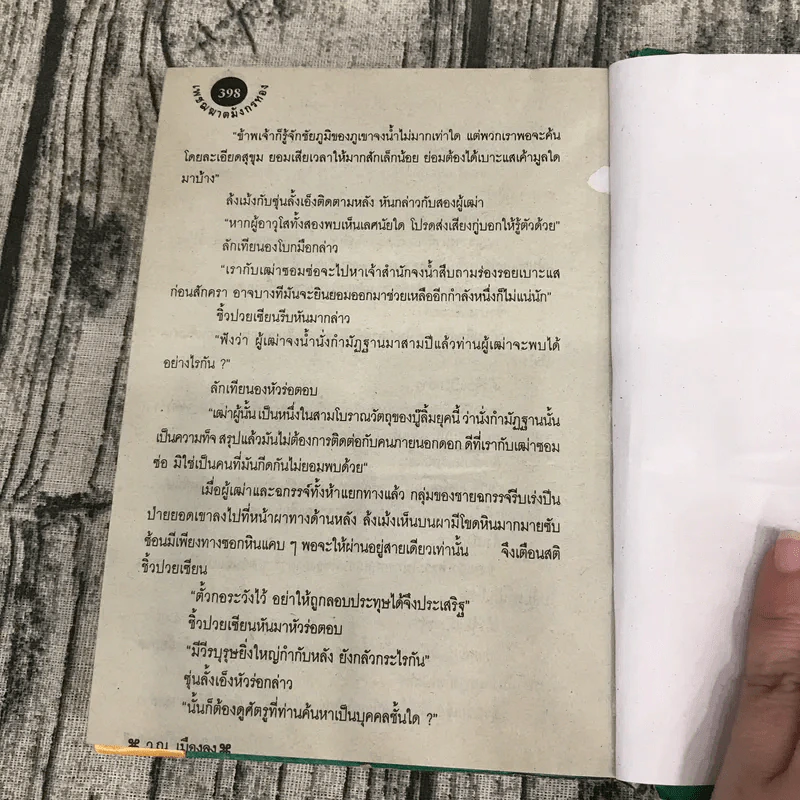 398
เพชฌฆาตมังกรทอง
"ข้าพเจ้าก็รู้จักชัยภูมิของภูเขาจงน้ำไม่มากเท่าใด แต่พวกเราพอจะค้น
โดยละเอียดสุขุม ยอมเสียเวลาให้มากสักเล็กน้อย ย่อมต้องได้เบาะแสเค้ามูลใด
มาบ้าง"
ล้งเม้งกับซุ่นลั้งเอ็งติดตามหลัง หันกล่าวกับสองผู้เฒ่า
"หากผู้อาวุโสทั้งสองพบเห็นเลศนัยใด โปรดส่งเสียงกู่บอกให้รู้ตัวด้วย"
ลักเทียนองโบกมือกล่าว
"เรากับเฒ่าซอมซ่อจะไปหาเจ้าสำนักจงน้ำสืบถามร่องรอยเบาะแส
ก่อนสักครา อาจบางทีมันจะยินยอมออกมาช่วยเหลืออีกกำลังหนึ่งก็ไม่แน่นัก"
ชิ้วปวยเซียนรีบหันมากล่าว
"ฟังว่า ผู้เฒ่าจงน้ำนั่งกำมัฏฐานมาสามปีแล้วท่านผู้เฒ่าจะพบได้
อย่างไรกัน ?"
ลักเทียนองหัวร่อตอบ
"เฒ่าผู้นั้น เป็นหนึ่งในสามโบราณวัตถุของบู๊ลิ้มยุคนี้ ว่านั่งกำมัฏฐานนั้น
เป็นความเท็จ สรุปแล้วมันไม่ต้องการติดต่อกับคนภายนอกดอก ดีที่เรากับเฒ่าซอม
ซ่อ มิใช่เป็นคนที่มันกีดกันไม่ยอมพบด้วย"
เมื่อผู้เฒ่าและฉกรรจ์ทั้งห้าแยกทางแล้ว กลุ่มของชายฉกรรจ์รีบเร่งปีน
ป่ายยอดเขาลงไปที่หน้าผาทางด้านหลัง ล้งเม้งเห็นบนผามีโขดหินมากมายซับ
ซ้อนมีเพียงทางซอกหินแคบ ๆ พอจะให้ผ่านอยู่สายเดียวเท่านั้น จึงเตือนสติ
ชิ้วปวยเซียน
"ตั้วกอระวังไว้ อย่าให้ถูกลอบประทุษได้จึงประเสริฐ"
ชิ้วปวยเซียนหันมาหัวร่อตอบ
"มีวีรบุรุษยิ่งใหญ่กำกับหลัง ยังกลัวกระไรกัน"
ซุ่นลั้งเอ็งหัวร่อกล่าว
"นั้นก็ต้องดูศัตรูที่ท่านค้นหาเป็นบุคคลชั้นใด ?"
ว.ณ. เมืองลุง